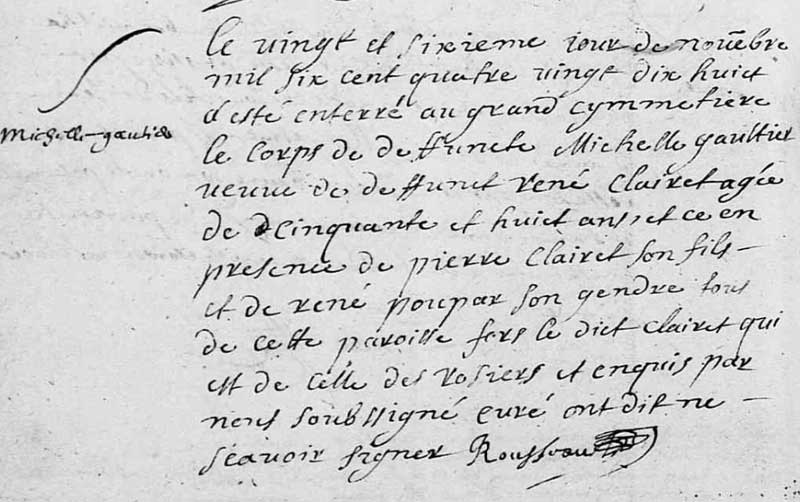 Le vingt et sixieme iour de novẽbre
mil six cent quatre vingt dix huict
a esté enterré au grand cymmetiere
Michelle gaultier
le corps de deffuncte Michelle gaultier
veuve de deffunct rené Clairet agée
de cinquante et huict ans, et ce en
presence de pierre Clairet son fils -
et de rené poupar son gendre tous
de cette paroisse fors le dict Clairet qui
est de celle des rosiers et enquis par
nous soubssigné curé ont dit ne -
scavoir signer Rousseau